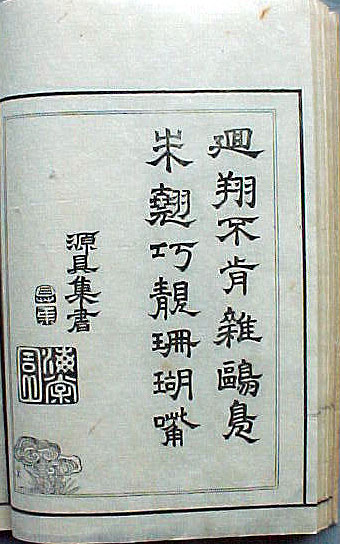 廻翔不肯雜鷗鳧
朱翹巧靚珊瑚嘴
源具集書